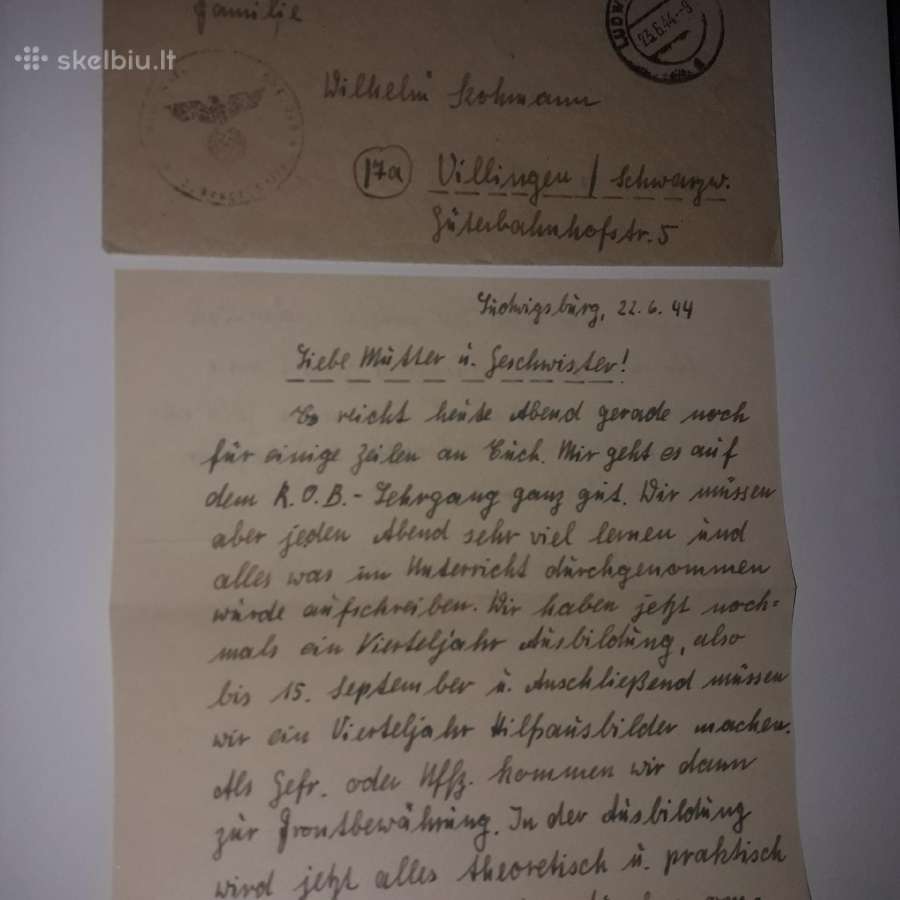 Familie
skelbiu.lt
LUDW
23.6.44.-9
Wilhelm
17a Villingen / Schwarzw.
Güterbahnhofstr. 5
Ludwigsburg, 22.6.44
Liebe Mutter u. Geschwister!
Es reicht heute Abend gerade noch
für einige Zeilen an Euch. Mir geht es auf
dem R.O.B.-Lehrgang ganz gut. Wir müssen
aber jeden Abend sehr viel lernen und
alles was im Unterricht durchgenommen
wurde aufschreiben. Wir haben jetzt noch=
mals ein Vierteljahr Ausbildung, also
bis 15. September u. Anschließend müssen
wir ein Vierteljahr Hilfsausbilder machen.
Als Gefr. oder Uffz. kommen wir dann
zur Frontbewährung. In der Ausbildung
wird jetzt alles theoretisch u. praktisch